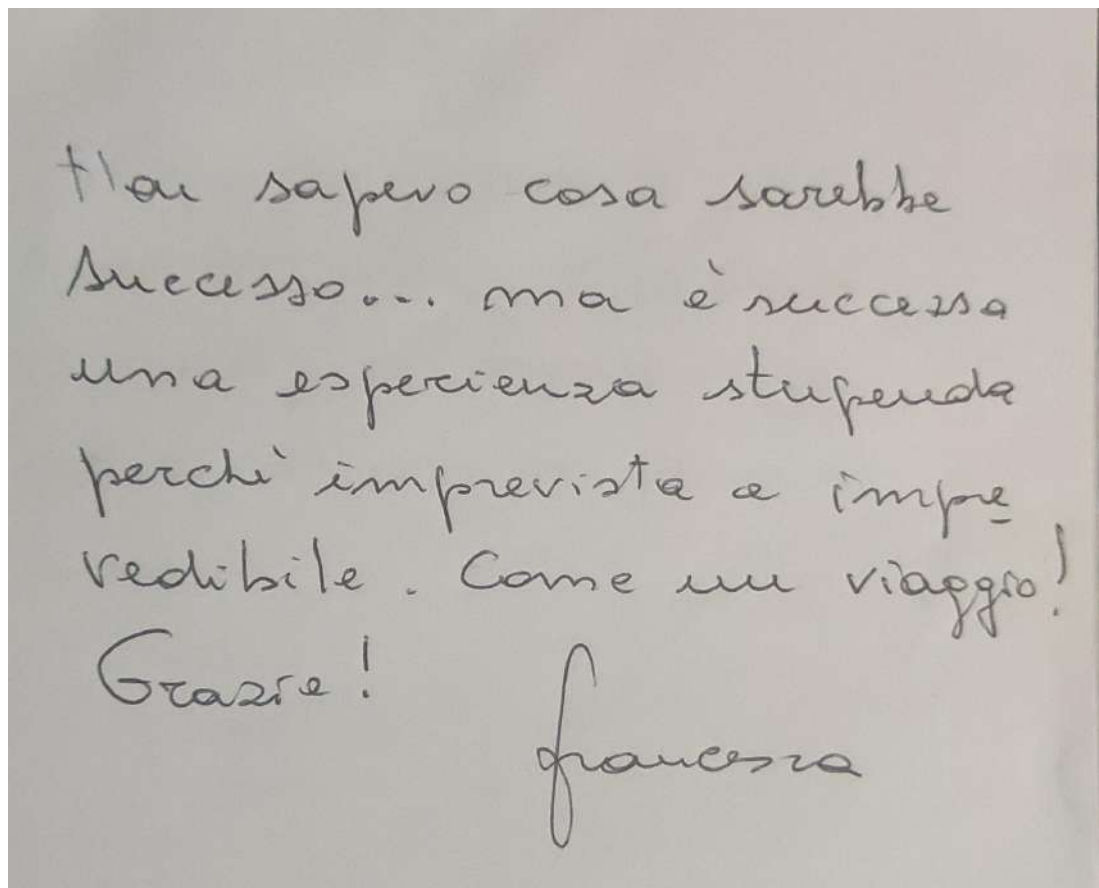 Non sapevo cosa sarebbe
successo... ma è successa
una esperienza stupenda
perchè imprevista e impre
vedibile. Come un viaggio!
Grazie!
francesca